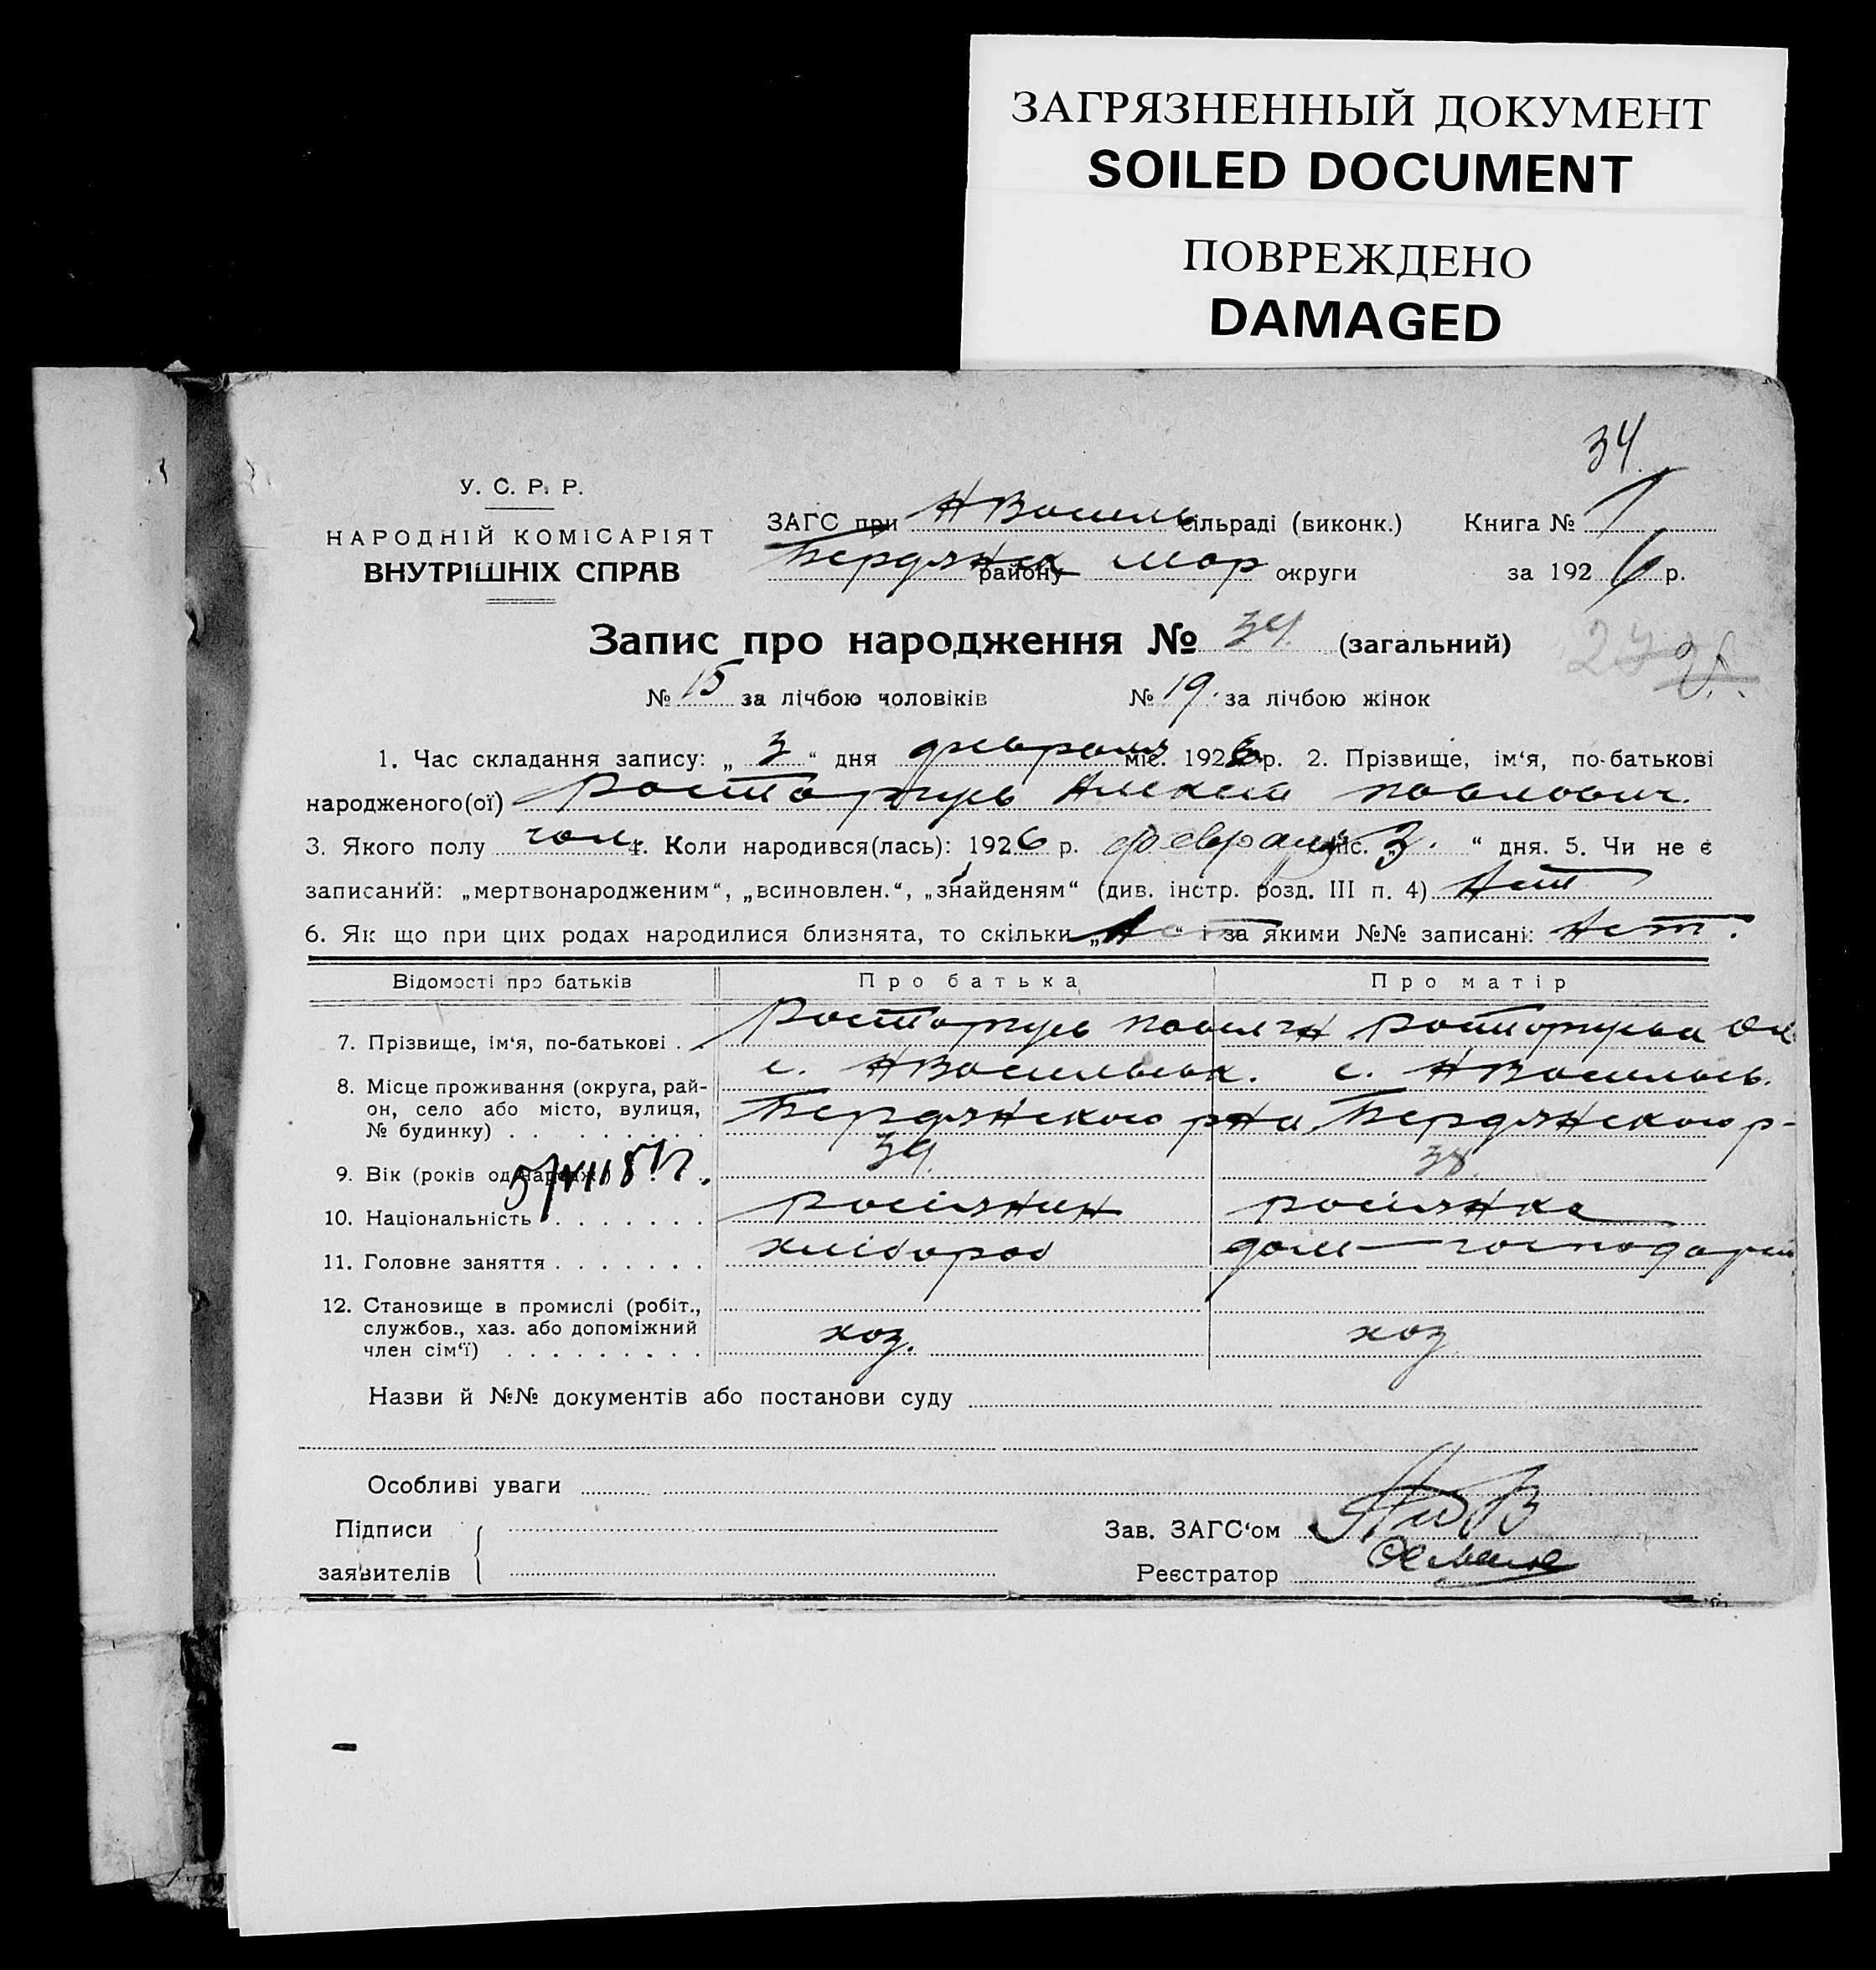 ЗАГРЯЗНЕННЫЙ ДОКУМЕНТ
SOILED DOCUMENT
ПОВРЕЖДЕНО
DAMAGED
34
У. С. Р. Р.
НАРОДНІЙ КОМІСАРІЯТ
ВНУТРІШНІХ СПРАВ
ЗАГС при НВасиль сільраді (виконк.) Книга № 1
Бердянск району мар округи за 1926 р.
Запис про народження № 34. (загальний)
№ 15 за лічбою чоловіків № 19. за лічбою жінок
1. Час складання запису: „ 3 “ дня февраля міс. 1926 р. 2. Прізвище, ім‘я, по-батькові
народженого(ої) Росторгуев Алексей павлович.
3. Якого полу чол. 4. Коли народився(лась): 1926 р. февраля міс. „ 3. “ дня. 5. Чи не є
записаний: „мертвонародженим“, „всиновлен.“, „знайденям“ (див. інстр. розд. III п. 4) Нет
6. Як що при цих родах народилися близнята, то скільки „ Нет “ і за якими №№ записані: Нет.
Відомості про батьків Про батька Про матір
7. Прізвище, ім‘я, по-батькові . . Росторгуев
8. Місце проживання (округа, рай-
он, село або місто, вулиця,
№ будинку) . . . . . . . . .
с. НВасильевк. с. НВасильев.
Бердянского рна Бердянского р-
9. Вік (років од народж.) . . . 39. 38.
10. Національність . . . . . . . росіянин росіянка
11. Головне заняття . . . . . . . хлібороб дом—господарки
12. Становище в промислі (робіт.,
службов., хаз. або допоміжний
член сім‘ї) . . . . . . . . . хоз. хоз
Назви й №№ документів або постанови суду
Особливі уваги
Підписи
заявителів
Зав. ЗАГС‘ом
Реєстратор